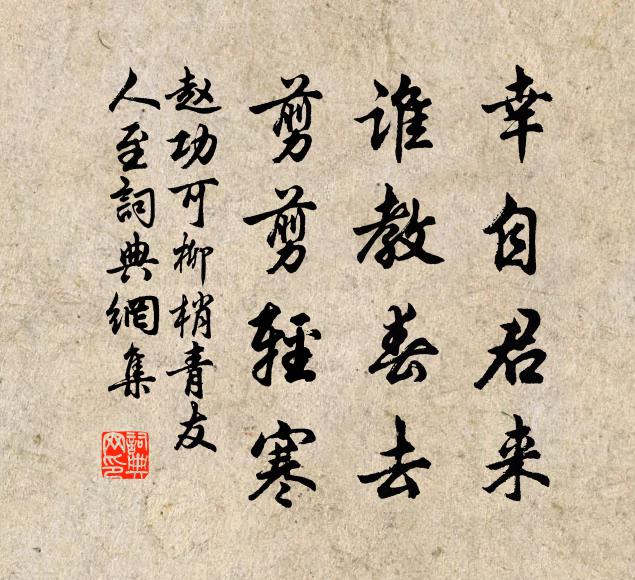 幸自君来
谁教春去
剪剪轻寒
赵功可柳梢青友
人至詞典網集
詞典
网印